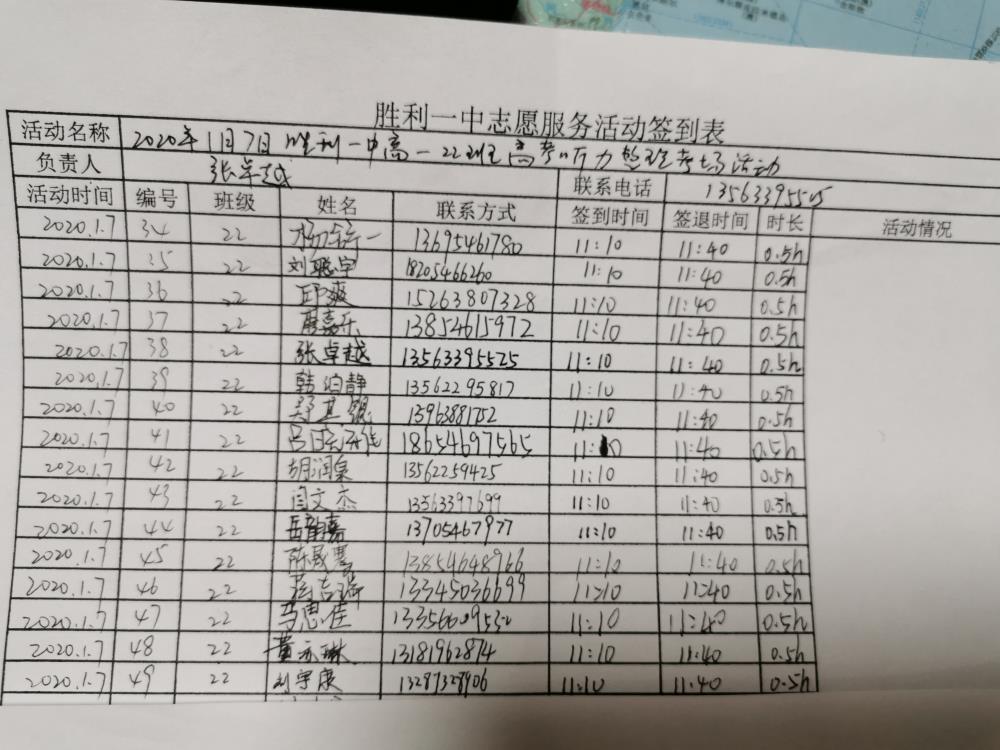 胜利一中志愿服务活动签到表
活动名称 2020年1月7日胜利一中高一22班高考听力整理考场活动
负责人 张卓越 联系电话
活动时间 编号 班级 姓名 联系方式 签到时间 签退时间 时长 活动情况
2020.1.7 34 22 13695461780 11:10 11:40 0.5h
2020.1.7 35 22 刘聪宇 18205466260 11:10 11:40 0.5h
2020.1.7 36 22 邱爽 15263807328 11:10 11:40 0.5h
2020.1.7 37 22 13854615972 11:10 11:40 0.5h
2020.1.7 38 22 张卓越 13563395525 11:10 11:40 0.5h
2020.1.7 39 22 韩泊静 13562295817 11:10 11:40 0.5h
2020.1.7 40 22 13963881752 11:10 11:40 0.5h
2020.1.7 41 22 18654697565 11:10 11:40 0.5h
2020.1.7 42 22 胡润泉 13562259425 11:10 11:40 0.5h
2020.1.7 43 22 闫文杰 13563397699 11:10 11:40 0.5h
2020.1.7 44 22 岳韵嘉 13705467977 11:10 11:40 0.5h
2020.1.7 45 22 13854648966 11:10 11:40 0.5h
2020.1.7 46 22 13345036699 11:10 11:40 0.5h
2020.1.7 47 22 马思佳 11:10 11:40 0.5h
2020.1.7 48 22 黄亦琳 13181962814 11:10 11:40 0.5h
2020.1.7 49 22 刘宇康 13287328906 11:10 11:40 0.5h